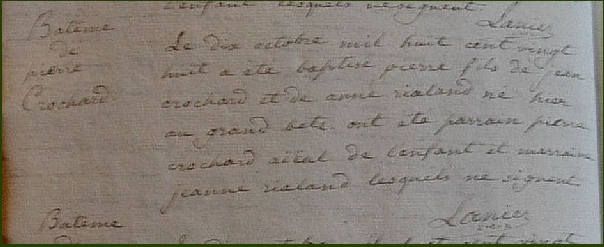 l'enfant lesquels ne signent
Lanier
Bateme
de
pierre
Crochard
Le dix octobre mil huit cent vingt
huit a été baptisé pierre fils de jean
crochard et de anne rialand né hier
au grand beté. ont été parrain pierre
crochard aïeul de l'enfant et marraine
jeanne rialand lesquels ne signent
Lanier
Bateme